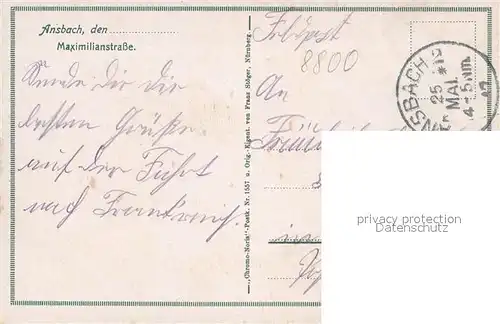 Ansbach, den
Maximilianstraße.
Sende dir die
besten Grüße
auf der Fahrt
nach Frankreich.
„Chromo-Noris“-Postk. Nr. 1557 u. Orig.-Eigent. von Franz Söger, Nürnberg
Feldpost
8800
An
Fräulein
ANSBACH 2
25
MAI
4-5 Nm
17
privacy protection
Datenschutz